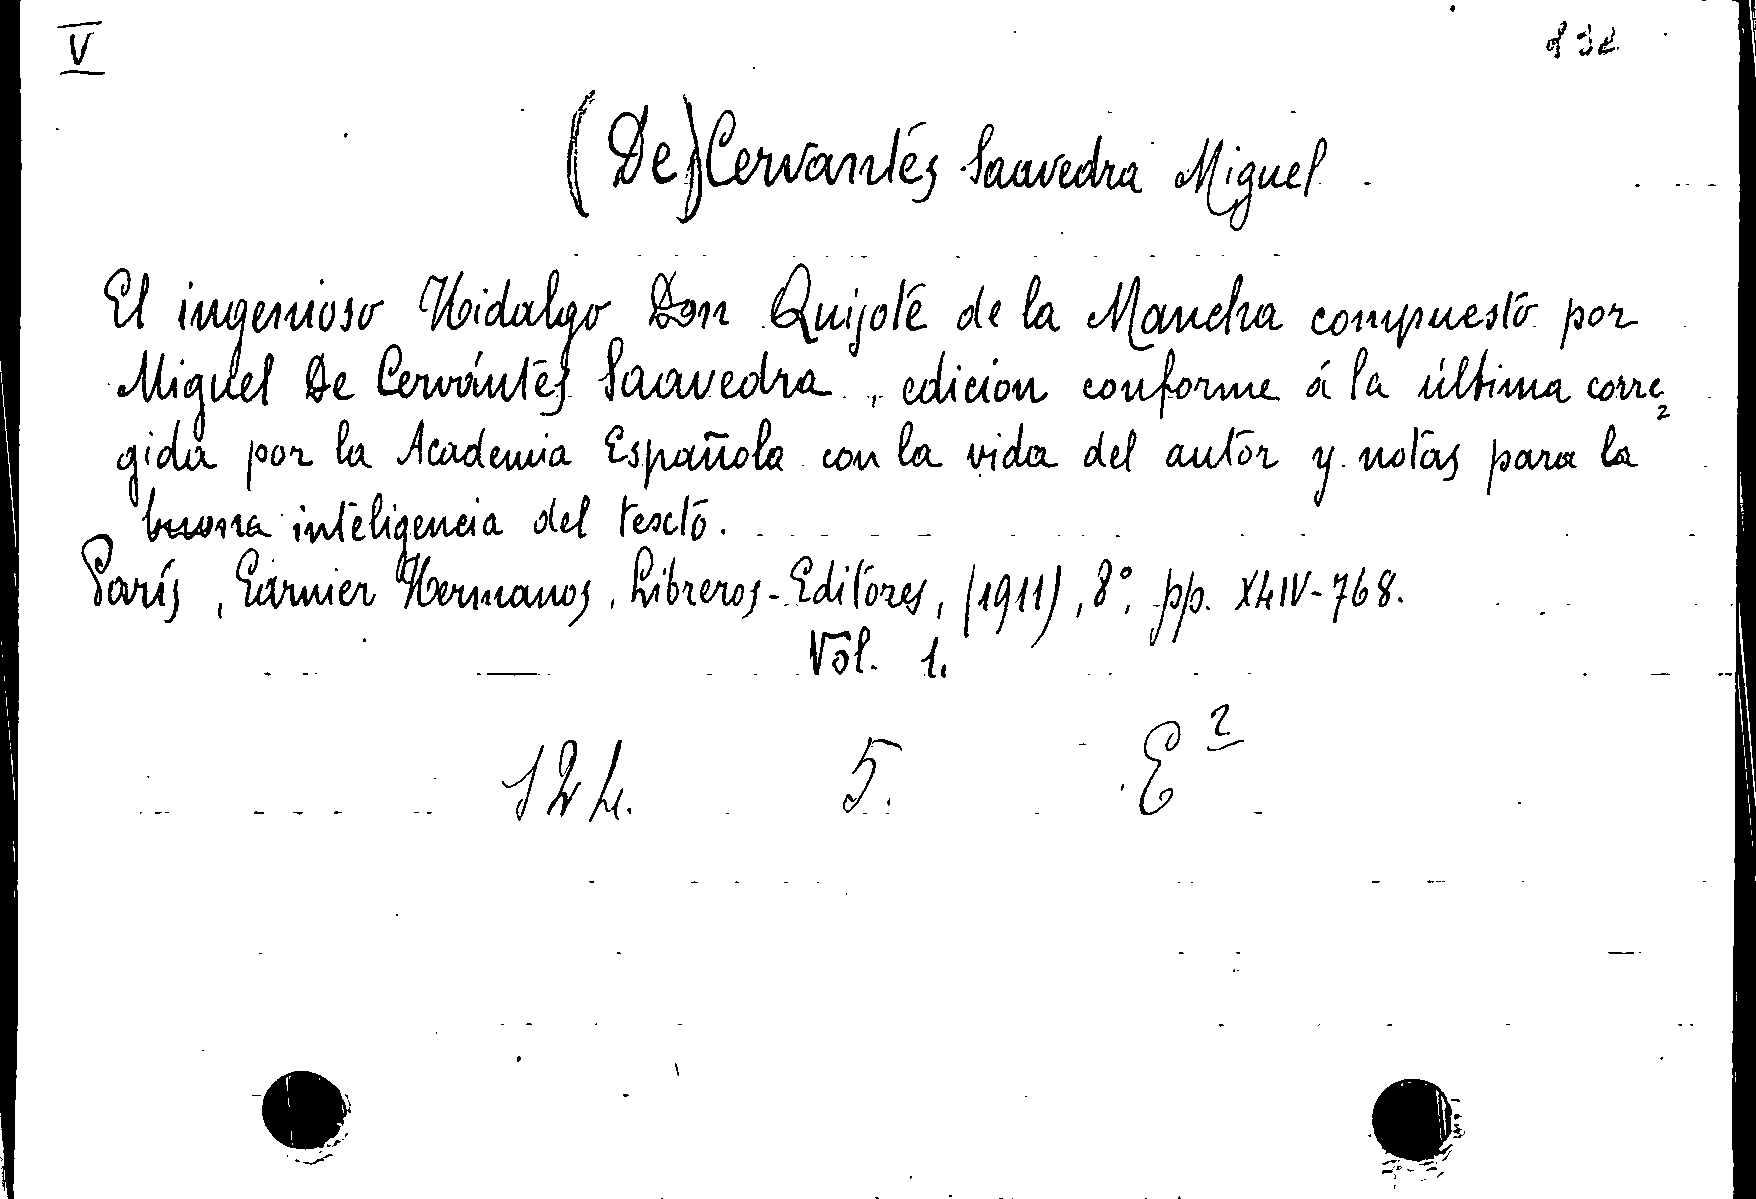 V
(De) Cervantes Saavedra Miguel
El ingenioso Hidalgo Don Quijote de la Mancha compuesto por
Miguel De Cervántes Saavedra, edicion conforme á la última corre=
gida por la Academia Española con la vida del autor y notas para la
buona inteligencia del texto.
París, Garnier Hermanos, Libreros-Editores, (1911), 8°, pp. XLIV-768.
Vol. 1.
124. 5. E²